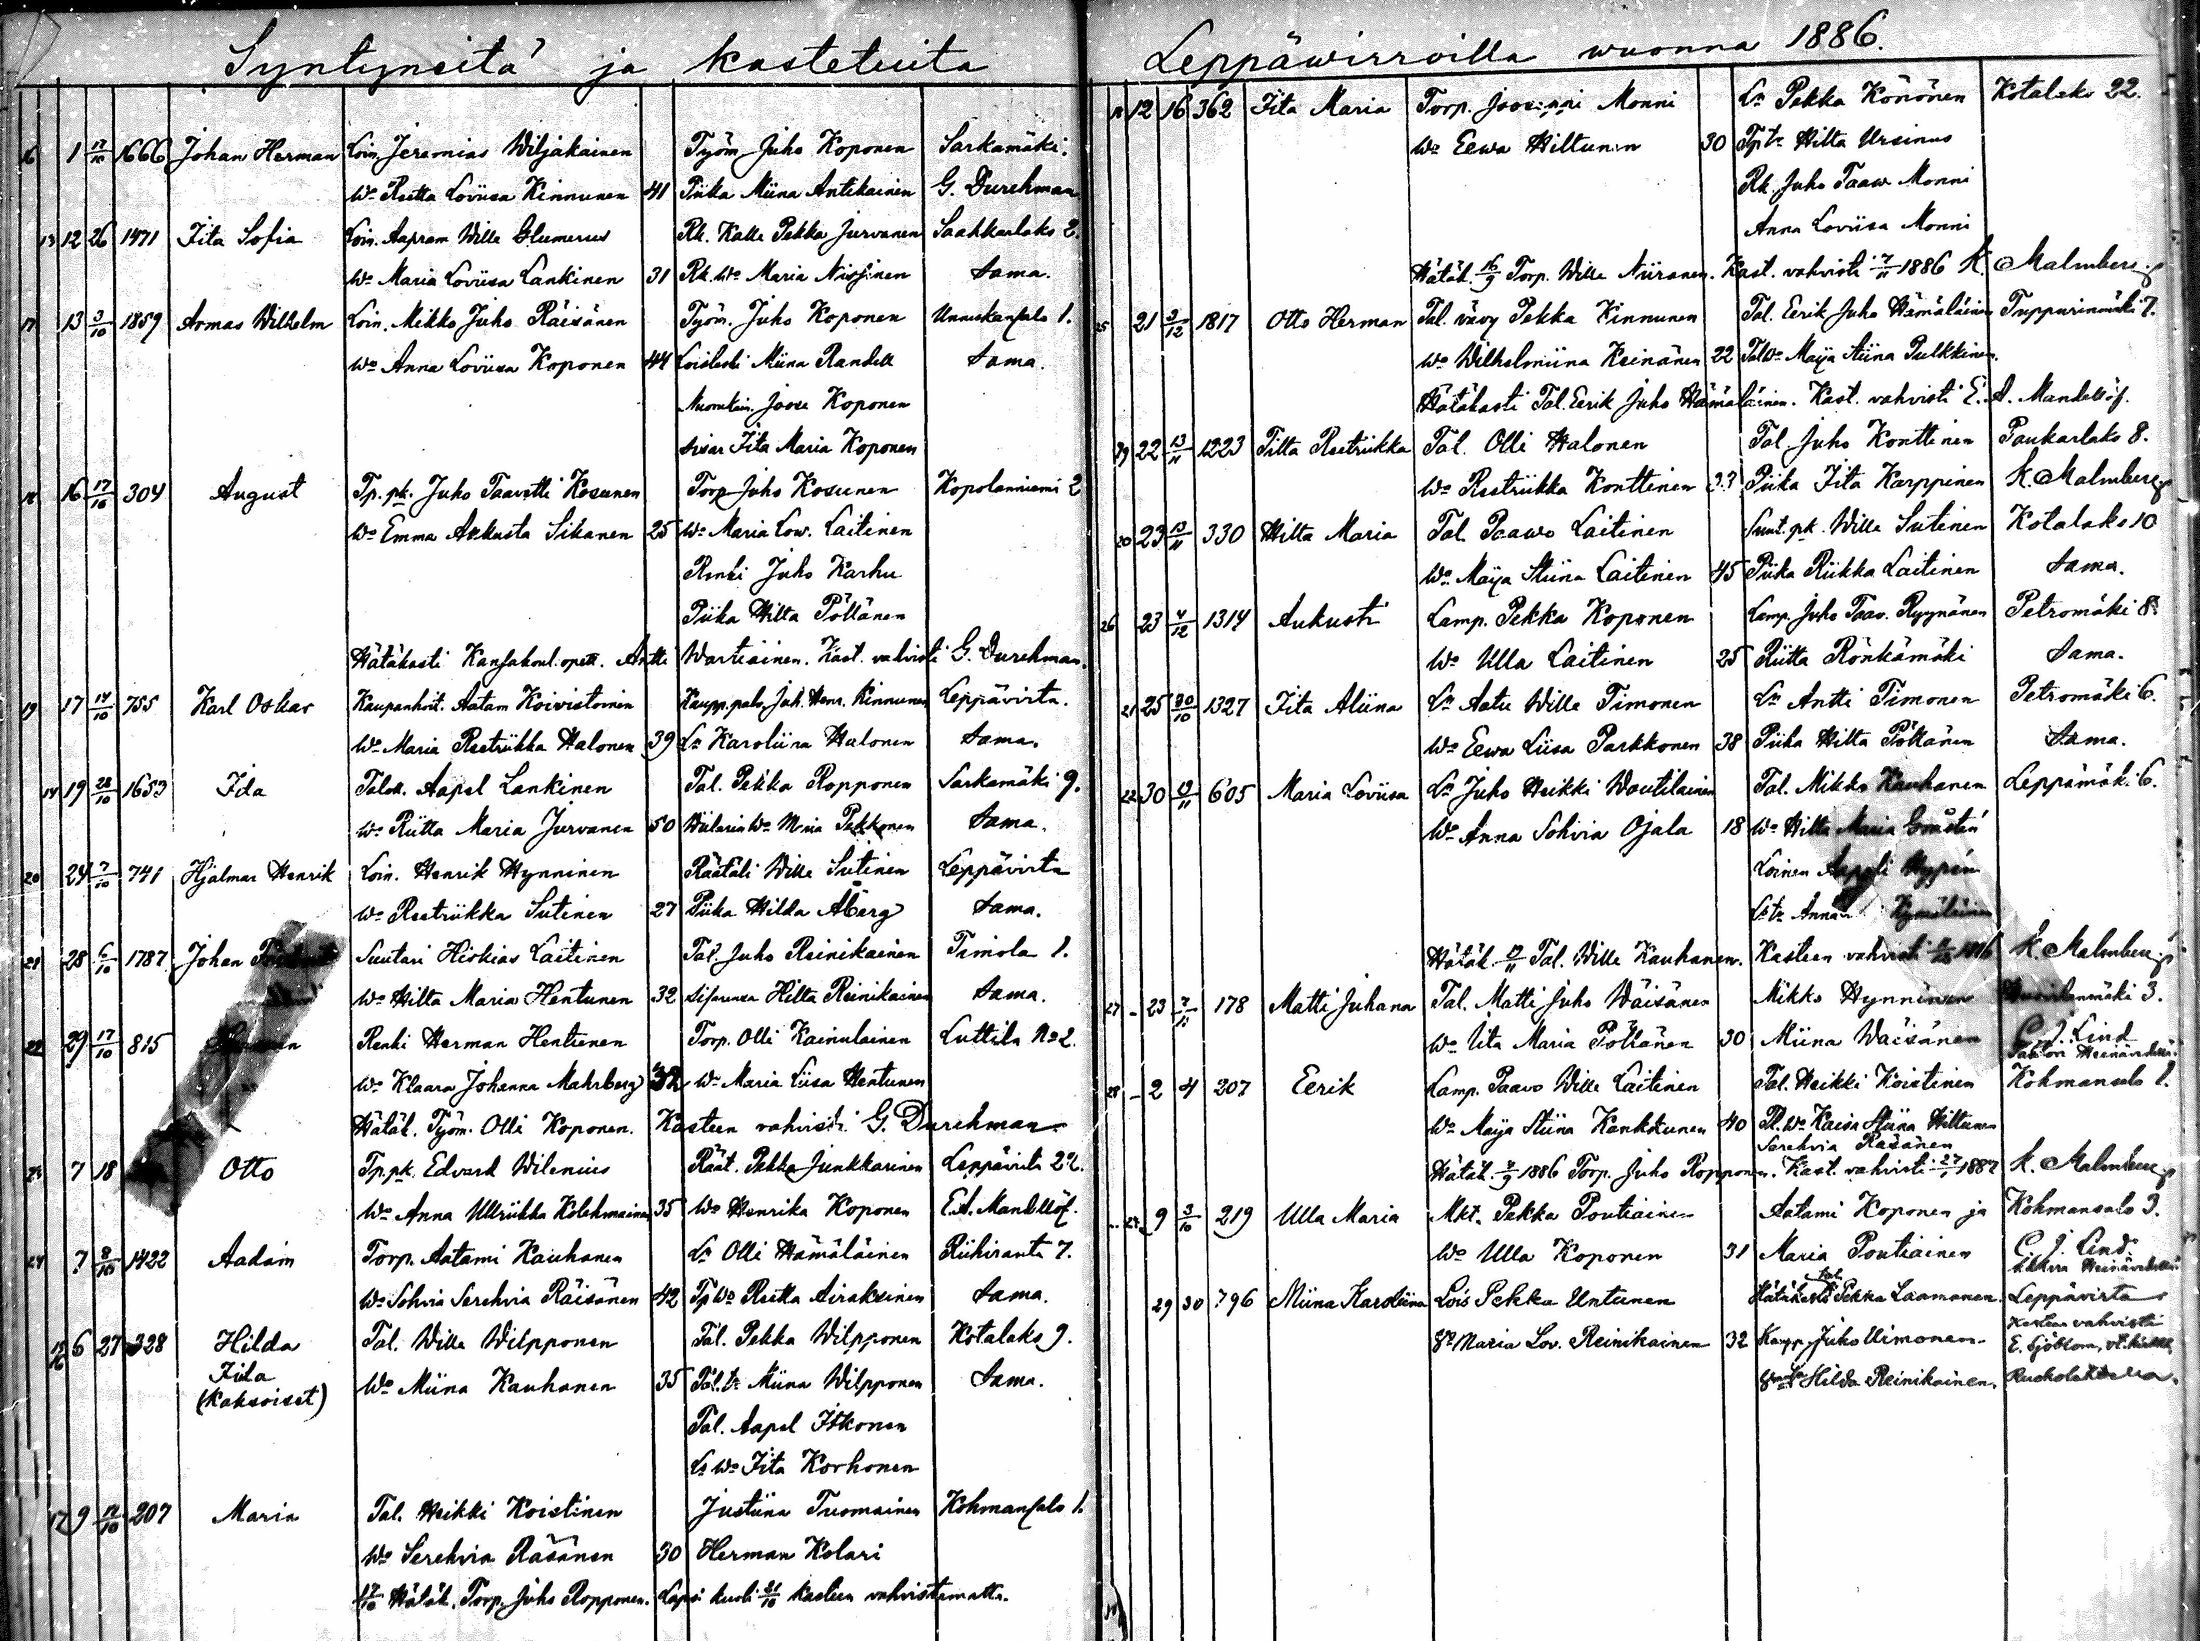 Syntyneitä ja kastetuita
16 1 17/10 1666 Johan Herman Loin. Jeremias Wiljakainen Työm. Juho Koponen Sarkamäki.
Wo Reetta Loviisa Kinnunen 41 Piika Miina Antikainen G. Durchman
13 12 26 1471 Iita Sofia Loin. Aapram Wille Glumerus Rk. Kalle Pekka Jurvanen Saahkarlaks 2.
Wo Maria Loviisa Lankinen 31 Rk. Wo Maria Sama.
17 13 3/10 1859 Armas Wilhelm Loin. Mikko Juho Räisänen Työm. Juho Koponen 1.
Wo Anna Loviisa Koponen 44 Loisleski Miina Randell Sama.
Nuorukain. Joose Koponen
sisar Iita Maria Koponen
18 16 17/10 304 August Tp. pk. Juho Taavetti Kosunen Torp. Juho Kosunen Kopolanniemi 2
Wo Emma Aukusta Sikanen 25 Wo Maria Low. Laitinen
Renki Juho Karhu
Piika Hilta Pöllänen
Hätäkasti Kansakoul. opett. Antti Wartiainen. Kast. vahvisti G. Durchman.
19 17 14/10 755 Karl Oskar Kaupanhoit. Aatam Koivistoinen Kaupp. palv. Joh. Henr. Kinnunen Leppävirta.
Wo Maria Reetriikka Halonen 39 Ls Karoliina Halonen Sama.
14 19 28/10 1653 Ida Talok. Aapel Lankinen Tal. Pekka Ropponen Sarkamäki 9.
Wo Riitta Maria Jurvanen 50 Wiilarin Wo Miia Pekkonen Sama.
20 24 7/10 741 Hjalmar Henrik Loin. Henrik Hynninen Räätäli Wille Sutinen Leppävirta
Wo Reetriikka Sutinen 27 Piika Hilda Åberg Sama.
21 28 6/10 1787 Johan Suutari Hiskias Laitinen Tal. Juho Reinikainen Timola 1.
Wo Hilta Maria Hentunen 32 Hilta Reinikainen Sama.
22 29 17/10 815 Renki Herman Hentunen Torp. Olli Kainulainen Luttila No 2.
Wo Klaara Johanna Mahrberg 32 Wo Maria Liisa Hentunen
Hätäk. Työm. Olli Koponen. Kasteen vahvisti G. Durchman
23 7 18 Otto Tp. pk. Edvard Wilenius Räät. Pekka Junkkarinen Leppävirta 22.
Wo Anna Ullriikka Kolehmainen 35 Wo Henrika Koponen E. A. Mandellöf.
24 7 8/10 1422 Aadam Torp. Aatami Kauhanen Ls Olli Hämäläinen Riihiranta 7.
Wo Sohvia Serehvia Räisänen 42 Tp Wo Reetta Airaksinen Sama.
15/16 6 27 328 Hilda Tal. Wille Wilpponen Tal. Pekka Wilpponen Kotalaks 9.
Iida
Wo Miina Kauhanen 35 Tal. tr Miina Wilpponen Sama.
(Kaksoiset)
Tal. Aapel Itkonen
Ls Wo Iita Korhonen
17 9 17/10 207 Maria Tal. Heikki Koistinen Justiina Tuomainen Kohmansalo 1.
Wo Serehvia Räsänen 30 Herman Kolari
Hätäk. Torp. Juho Ropponen. Lapsi kuoli 21/10 kasteen vahvistamatta.
Leppäwirroilla wuonna 1886.
18 12 16 362 Iita Maria Torp. Jooseppi Monni Ls Pekka Könönen Kotalaks 22.
Wo Eewa Hiltunen 30 Tp tr Hilta Ursinus
Rk. Juho Taaw Monni
Anna Loviisa Monni
Hätäk. 16/9 Torp. Wille Niiranen. Kast. vahvisti 7/11 1886 K. Malmberg
25 21 3/12 1817 Otto Herman Tal. vävy Pekka Kinnunen Tal. Eerik Juho Hämäläinen Tuppurinmäki 7.
Wo Wilhelmiina Keinänen 22 Tal Wo Maija Stiina Pulkkinen.
Hätäkasti Tal. Eerik Juho Hämäläinen. Kast. vahvisti E. A. Mandellöf.
19 22 13/11 1223 Tilta Reetriikka Tal. Olli Halonen Tal. Juho Konttinen Paukarlaks 8.
Wo Reetriikka Konttinen 33 Piika Iita Karppinen K. Malmberg
20 23 13/11 330 Hilta Maria Tal. Paawo Laitinen Suut. pk. Wille Sutinen Kotalaks 10
Wo Maija Stiina Laitinen 45 Piika Riikka Laitinen Sama.
26 23 4/12 1314 Aukusti Lamp. Pekka Koponen Lamp. Juho Taav. Ryynänen Petromäki 8.
Wo Ulla Laitinen 25 Riitta Rönkämäki Sama.
21 25 30/10 1327 Iita Aliina Ls Aatu Wille Timonen Ls Antti Timonen Petromäki 6.
Wo Eewa Liisa Parkkonen 38 Piika Hilta Pöllänen Sama.
22 30 605 Maria Loviisa Ls Juho Heikki Woutilainen Tal. Mikko Kauhanen Leppämäki 6.
Wo Anna Sohvia Ojala 18 Wo Hilta Maria
Loinen Aapeli
Ls tr Anna
Hätäk. Tal. Wille Kauhanen. Kasteen vahvisti K. Malmberg
27 - 23 178 Matti Juhana Tal. Matti Juho Wäisänen Mikko Hynninen 3.
Wo Iita Maria Pöllänen 30 Miina Wäisänen C. J. Lind
28 - 2 4 207 Eerik Lamp. Paavo Wille Laitinen Tal. Heikki Koistinen Kohmansalo 1.
Wo Maija Stiina Kankkunen 40 Tl. Wo Kaisa Stiina Hiltunen
Serehvia Räsänen
Hätäk. 1886 Torp. Juho Ropponen. Kast. vahvisti 1887 K. Malmberg
9 3/10 219 Ulla Maria Mkt. Pekka Poutiainen Aatami Koponen ja Kohmansalo 3.
Wo Ulla Koponen 31 Maria Poutiainen C. J. Lind.
29 30 796 Miina Karoliina Lois Pekka Untunen Hätäkasti Pekka Laamanen. Leppävirta
Kasteen vahvisti
Maria Lov. Reinikainen 32 Kaupp. Juho Uimonen E. Sjöblom,
Hilda Reinikainen. Ruokolahdella.